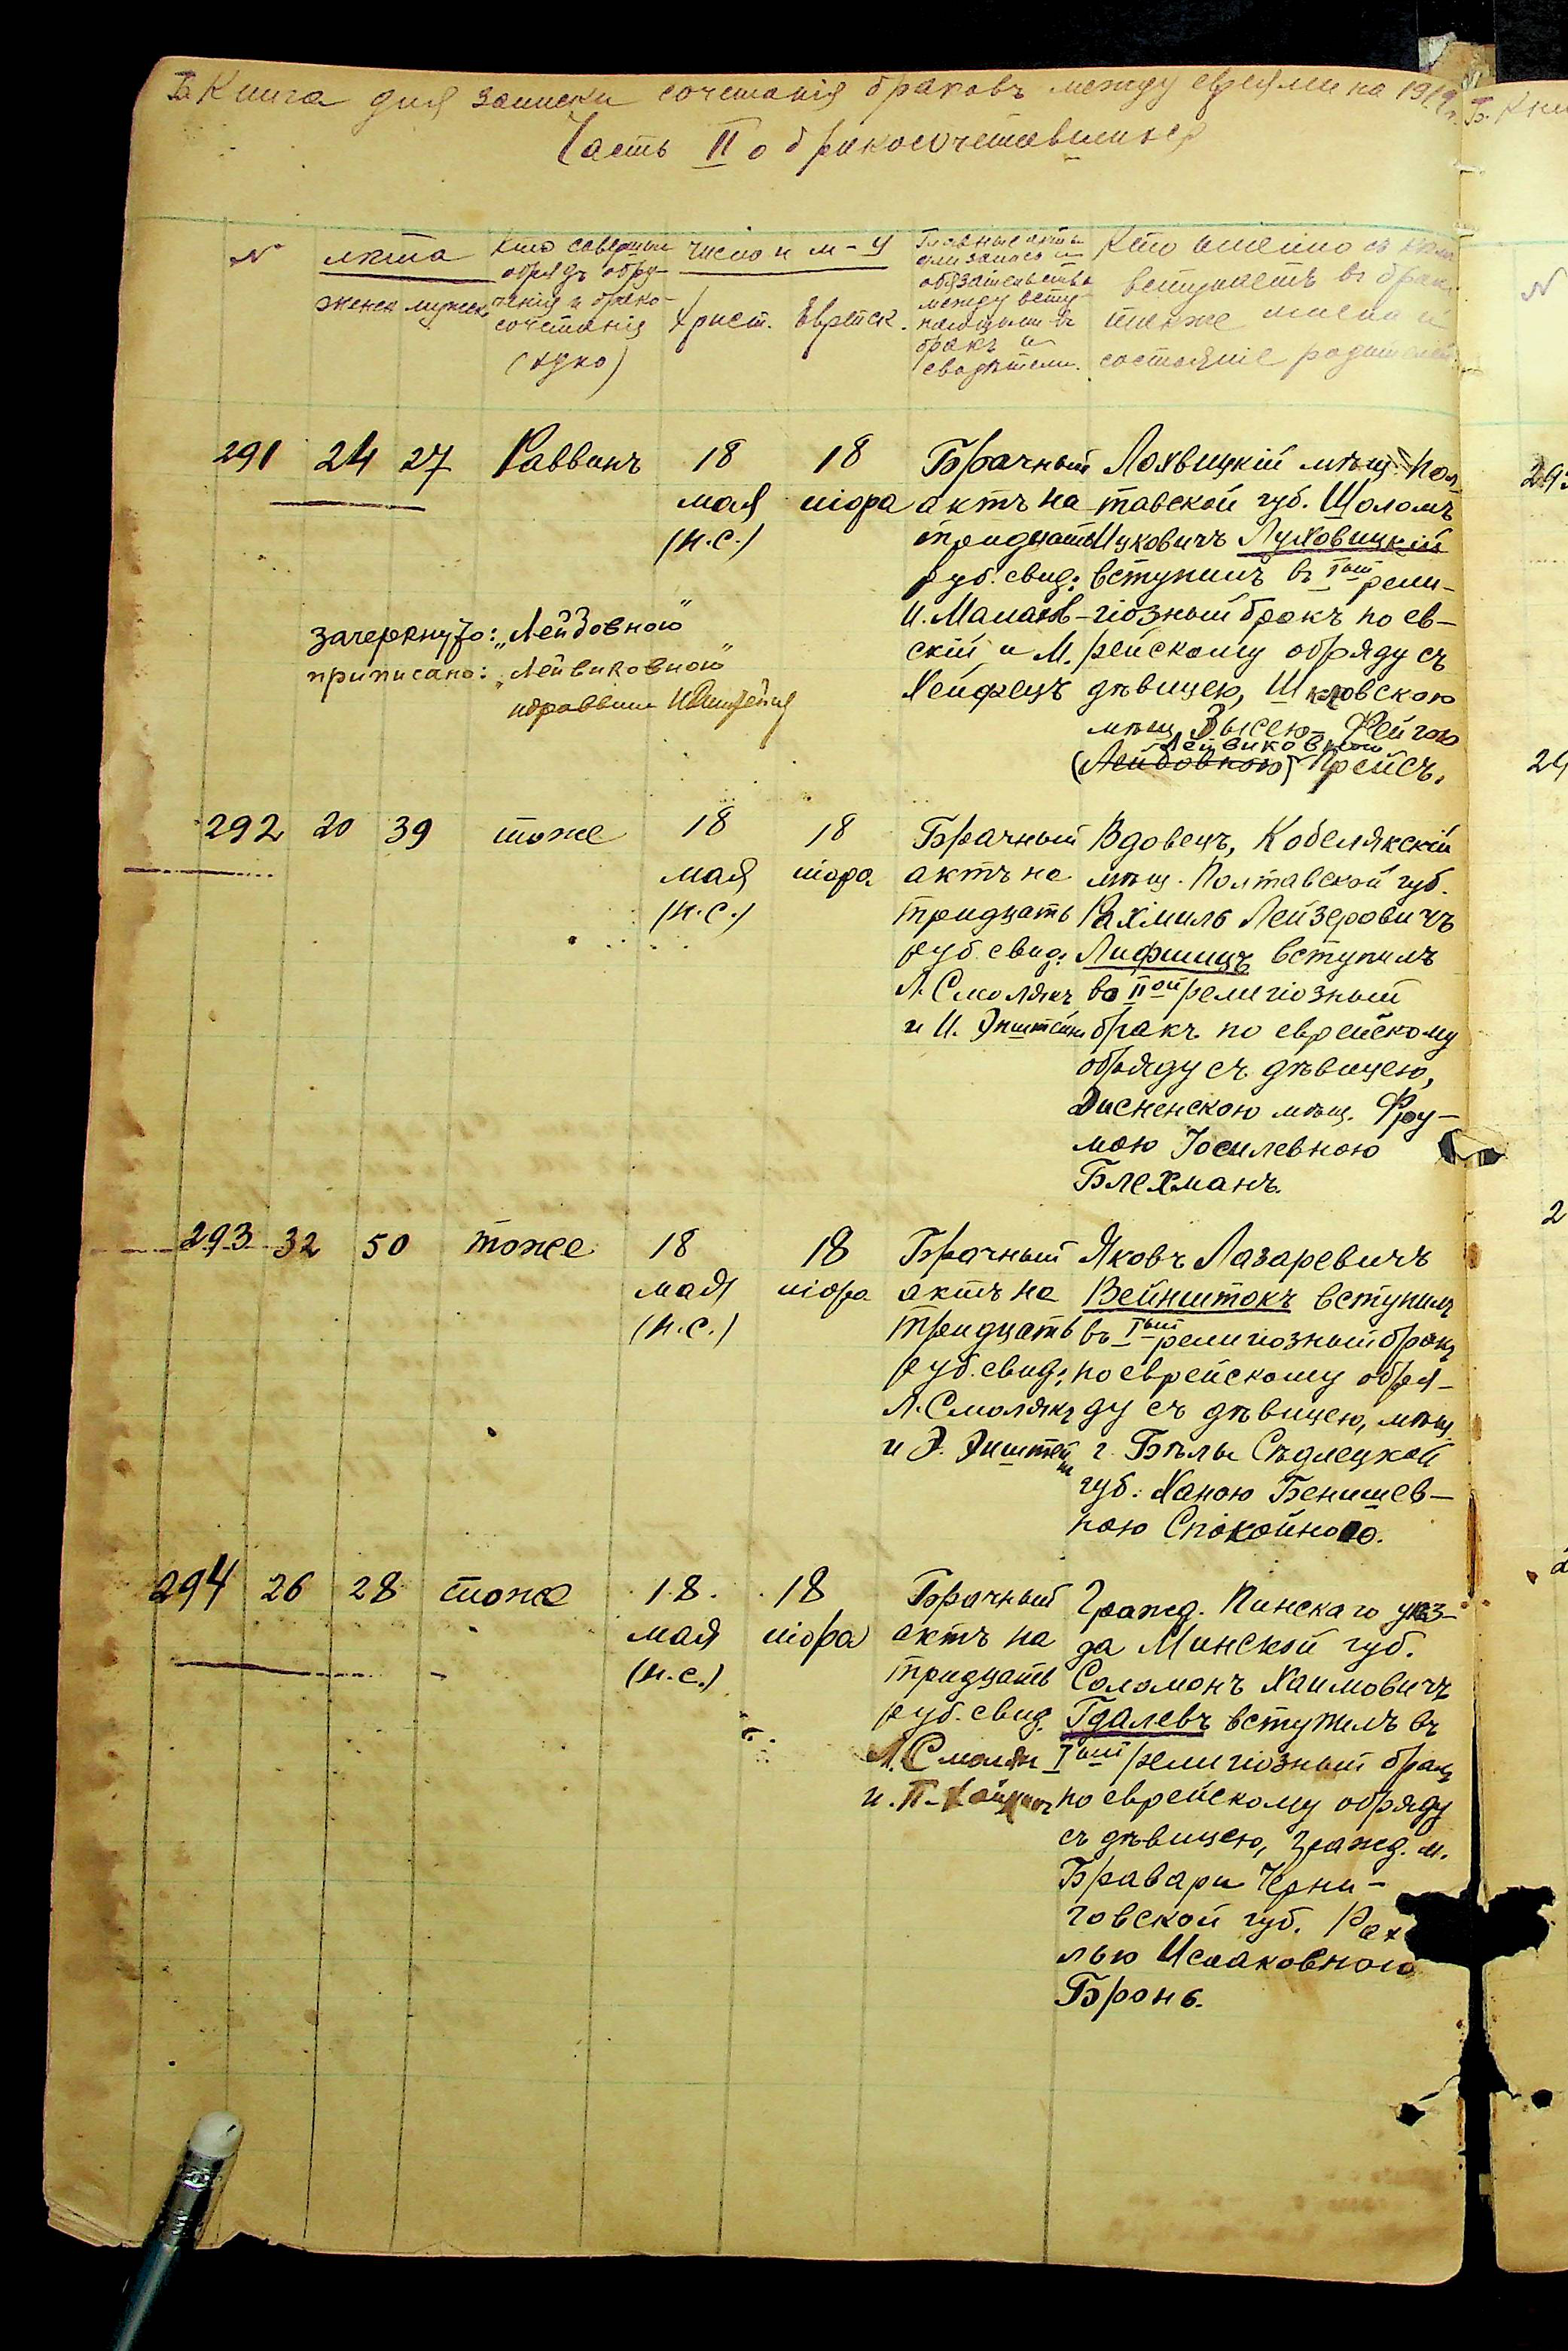 Б. Книга для записки сочетанія браковъ между евреями на 1919 г.
Часть II о бракосочетавшихся
№
лѣта
женск мужск
Кто совершил
обрядъ обру-
ченія и брако-
сочетанія
(хупо)
число и м-ц
Христ. Еврейск.
Главные акты
или записи и
обязательства
между всту-
пающими въ
бракъ и
свидѣтели.
Кто именно съ кѣмъ
вступаетъ въ бракъ
также имена и
состояніе родителей
291 24 27 Раввинъ
18
мая
(н.с.)
18
іюра
Брачный
актъ на
тридцать
руб. свид:
И. Маланов-
скій и М.
Хейфецъ
Лохвицкій мѣщ. Пол-
тавской губ. Шоломъ
Ицковичъ Луховицкій
вступилъ въ Iый рели-
гіозный бракъ по ев-
рейскому обряду съ
дѣвицею, Шкловскою
мѣщ. Зысею-Фейгою
Лейвиковною
(Лейдовною) Прейсъ.
зачеркнуто: „Лейдовною"
приписано: „Лейвиковною"
292 20 39 тоже
18
мая
(н.с.)
18
іюра
Брачный
актъ на
тридцать
руб. свид:
Л. Смолякъ
и И. Эпштейн
Вдовецъ, Кобелякскій
мѣщ. Полтавской губ.
Рахмиль Лейзеровичъ
Лифшицъ вступилъ
во IIой религіозный
бракъ по еврейскому
обряду съ дѣвицею,
Дисненскою мѣщ. Фру-
мою Іосилевною
Блехманъ.
293 32 50 тоже
18
мая
(н.с.)
18
іюра
Брачный
актъ на
тридцать
руб. свид:
Л. Смолякъ
и Э. Эпштейн
Яковъ Лазаревичъ
Вейнштокъ вступилъ
въ Iый религіозный бракъ
по еврейскому обря-
ду съ дѣвицею, мѣщ
г. Бѣлы Сѣдлецкой
губ. Ханою Бенишев-
ною Спокойною.
294 26 28 тоже
18
мая
(н.с.)
18
іюра
Брачный
актъ на
тридцать
руб. свид.
Л. Смоляк
и П.
Гражд. Пинскаго уѣз-
да Минской губ.
Соломонъ Хаимовичъ
Гдалевъ вступилъ въ
Iый религіозный бракъ
по еврейскому обряду
съ дѣвицею, гражд. м.
Бравари Черни-
говской губ. Рах
лью Исааковною
Бронь.
Б. Кни
№